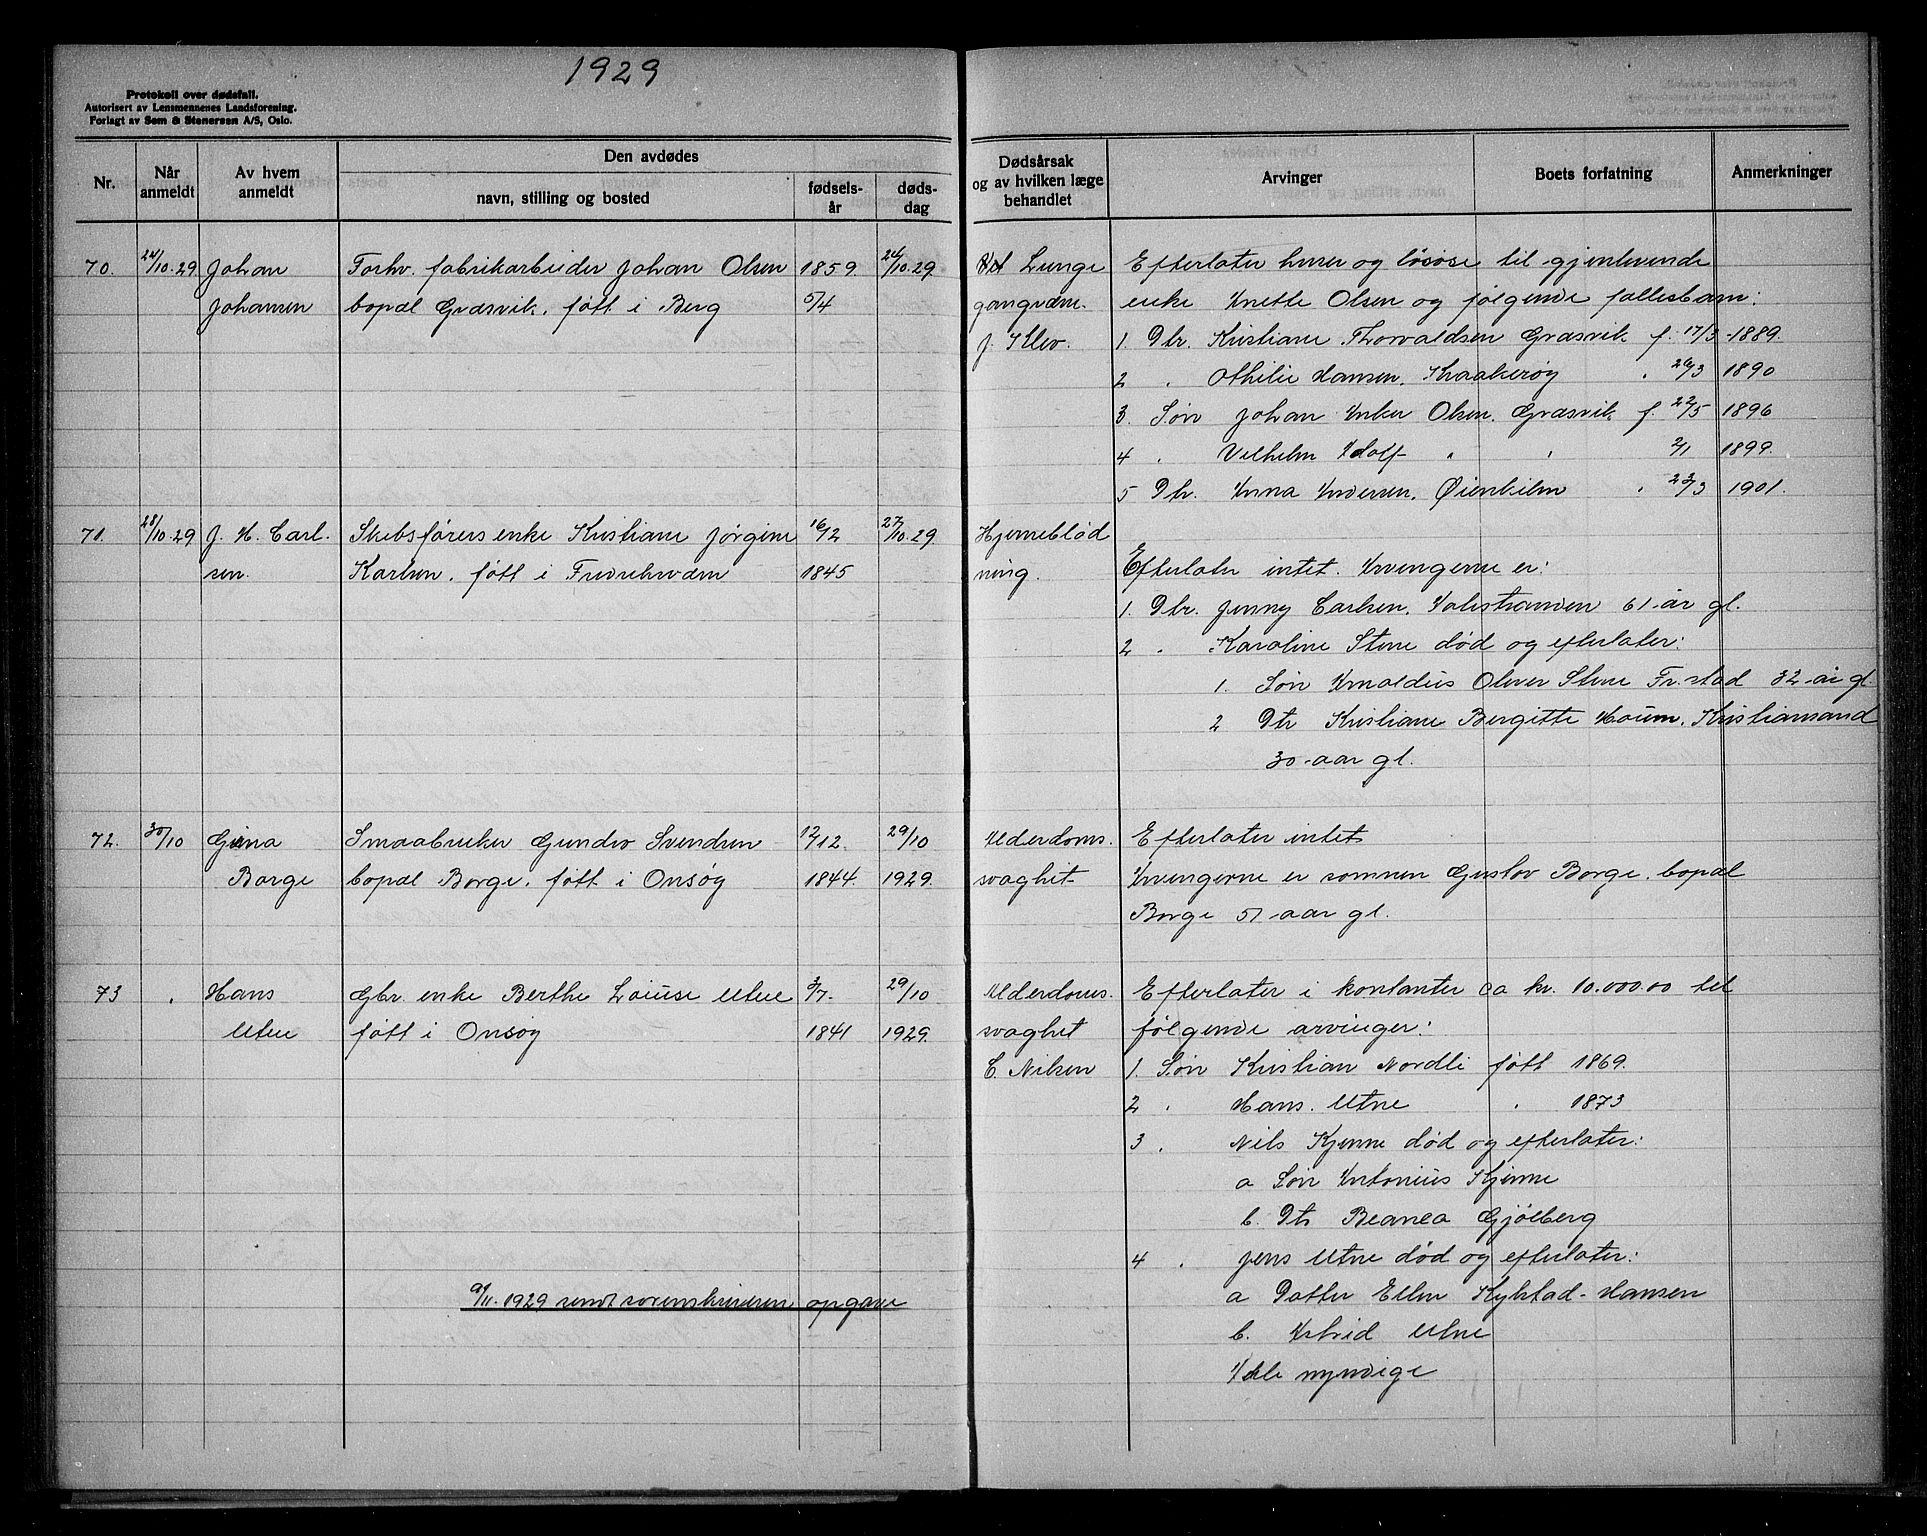 1929
Protokoll over dødsfall.
Autorisert av Lensmennenes Landsforening.
Forlagt av Sem & Stenersen A/S, Oslo.
Nr.
Når anmeldt
Av hvem anmeldt
Den avdødes
navn, stilling og bosted
fødselsår
dødsdag
Dødsårsak og av hvilken læge behandlet
Arvinger
Boets forfatning
Anmerkninger
70. 24/10-29 Johan Forhv. fabrikarbeider Johan Olsen 1859. 24/10-29
Johansen bopæl Græsvik, født i Berg 5/4
Lunge
gangræne.
J. Klev.
Efterlater huser og løsøse til gjenlevende
enke Anette Olsen og følgende fællesbarn:
1. Dtr. Kristiane Thorvaldsen Græsvik f. 17/3-1889.
2 " Othilie Hansen, Kraakerøy " 26/3 1890
3 Søn Johan Anker Olsen, Græsvik f. 22/5 1896
4 " Vilhelm Adolf " " 2/1 1899.
5 Dtr. Anna Andersen, Øienkilen " 23/3 1901.
71. 28/10-29 J. H. Carl- Skibsførers enke Kristiane Jørgine 16/12 27/10-29
sen. Karlsen, født i Fredrikværn 1845
Hjerneblød
ning.
Efterlater intet. Arvingerne er:
1. Dtr. Jenny Carlsen, Valestranden 61 år gl.
2 " Karoline Stene død og efterlater:
1. Søn Arnoldus Oliver Stene Fr.stad 32 år gl.
2 Dtr Kristiane Bergitte Houm, Kristiansand
30 aar gl.
72. 30/10 Gina Smaabruker Gundro Svendsen 12/12. 29/10
Borge bopæl Borge, født i Onsøy 1844. 1929.
Alderdoms-
svaghet
Efterlater intet
Arvingerne er sønnen Gustav Borge, bopæl
Borge 51 aar gl.
73 " Hans Gbr. enke Berthe Lovise Utne 3/7. 29/10
Utne født i Onsøy 1841 1929.
Alderdoms-
svaghet
C. Nilsen
Efterlater i kontanter ca kr. 10.000.00 til
følgende arvinger:
1. Søn Kristian Nordli født 1869.
2 " Hans Utne " 1873
3 " Nils Kjenne død og efterlater:
a Søn Antonius Kjenne
b. Dtr Beanca Gjølberg
4 " Jens Utne død og efterlater:
a Datter Ellen Kylstad-Hansen
b. Astrid Utne
Alle myndige
9/11-1929 sendt sorenskriveren opgave